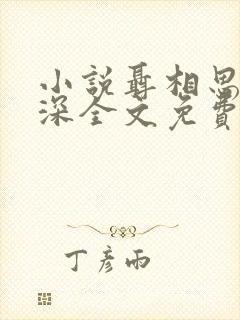 小說聶相思
深全文免費
丁彥雨